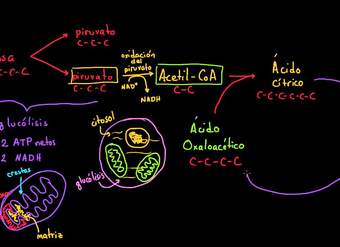 piruvato
C-C-C
osa
-C-C
piruvato
C-C-C
oxidación
del
piruvato
NAD⁺
NADH
Acetil-CoA
C-C
Ácido
cítrico
C-C-C-C-C-C
glucólisis
2 ATP netos
2 NADH
crestas
matriz
citosol
glucólisis
Ácido
Oxaloacético
C-C-C-C